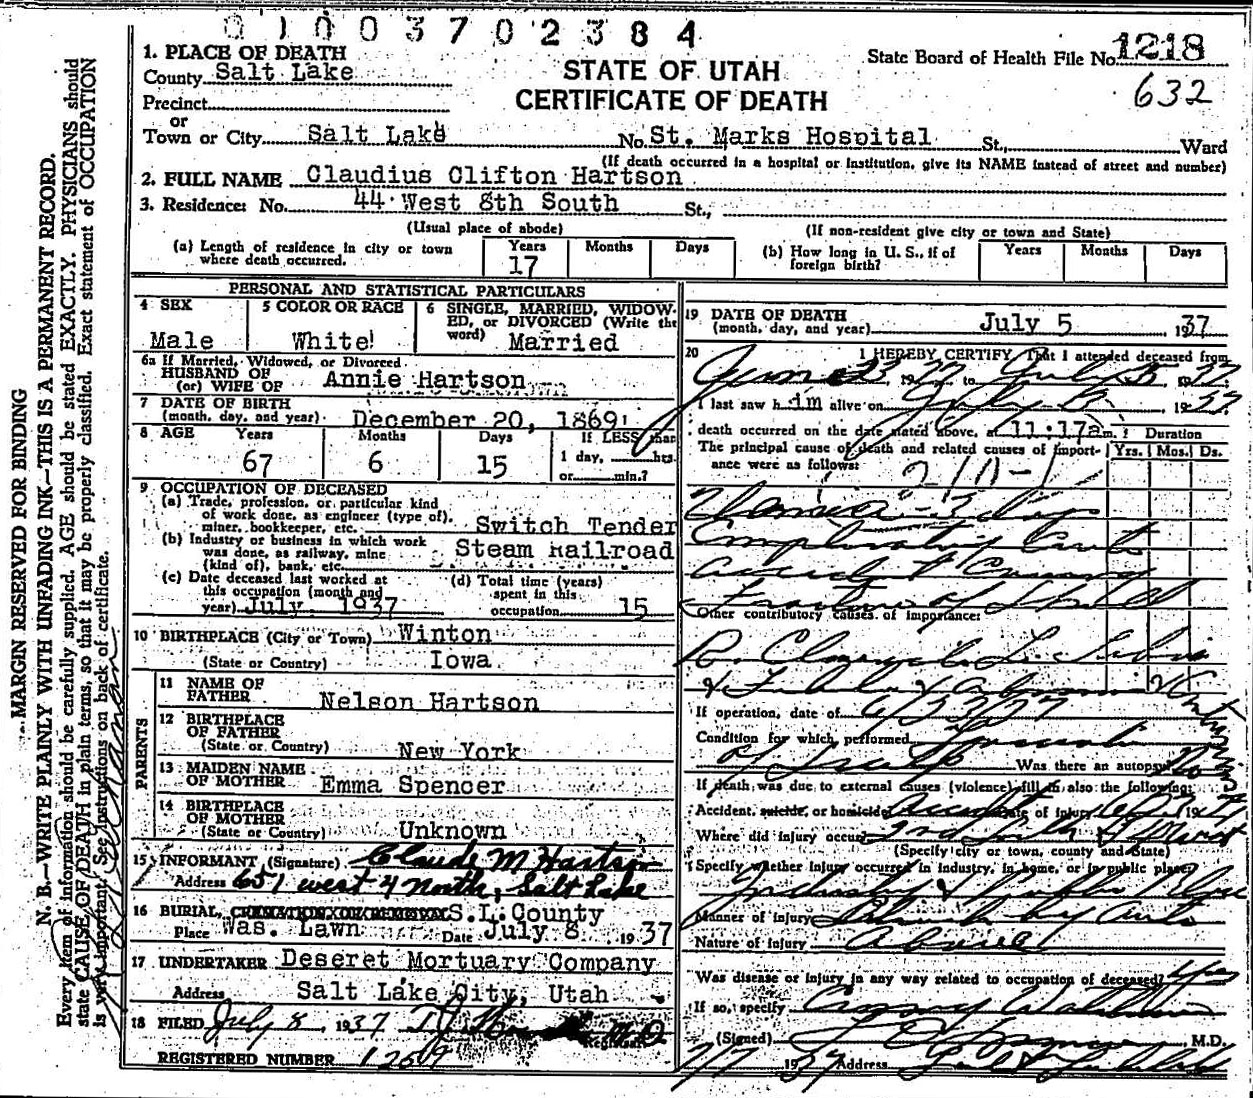 01003702384
1. PLACE OF DEATH
County Salt Lake
Precinct
or
Town or City Salt Lake
STATE OF UTAH
CERTIFICATE OF DEATH
State Board of Health File No. 1218
632
No. St. Marks Hospital St., Ward
(If death occurred in a hospital or institution, give its NAME instead of street and number)
2. FULL NAME Claudius Clifton Hartson
3. Residence: No. 44 West 8th South St.,
(Usual place of abode)
(If non-resident give city or town and State)
(a) Length of residence in city or town where death occurred. Years 17 Months Days
(b) How long in U. S., if of foreign birth? Years Months Days
MARGIN RESERVED FOR BINDING
N. B.—WRITE PLAINLY WITH UNFADING INK—THIS IS A PERMANENT RECORD.
Every item of information should be carefully supplied. AGE should be stated EXACTLY. PHYSICIANS should
state CAUSE OF DEATH in plain terms, so that it may be properly classified. Exact statement of OCCUPATION
is very important. See instructions on back of certificate.
PERSONAL AND STATISTICAL PARTICULARS
4 SEX Male
5 COLOR OR RACE White
6 SINGLE, MARRIED, WIDOWED, or DIVORCED (Write the word) Married
6a If Married, Widowed, or Divorced
HUSBAND OF
(or) WIFE OF Annie Hartson
7 DATE OF BIRTH
(month, day, and year) December 20, 1869
8 AGE Years 67 Months 6 Days 15 If LESS than 1 day, hrs. or min.?
9 OCCUPATION OF DECEASED
(a) Trade, profession, or particular kind
of work done, as engineer (type of),
miner, bookkeeper, etc. Switch Tender
(b) Industry or business in which work
was done, as railway, mine
(kind of), bank, etc. Steam Railroad
(c) Date deceased last worked at
this occupation (month and
year) July 1937
(d) Total time (years)
spent in this
occupation 15
10 BIRTHPLACE (City or Town) Winton
(State or Country) Iowa
PARENTS
11 NAME OF
FATHER Nelson Hartson
12 BIRTHPLACE
OF FATHER
(State or Country) New York
13 MAIDEN NAME
OF MOTHER Emma Spencer
14 BIRTHPLACE
OF MOTHER
(State or Country) Unknown
15 INFORMANT (Signature) Claude M Hartson
Address 651 west 4 North, Salt Lake
16 BURIAL, CREMATION OR REMOVAL S.L. County
Place Was. Lawn Date July 8 1937
17 UNDERTAKER Deseret Mortuary Company
Address Salt Lake City, Utah
18 FILED July 8, 1937 M.D.
Registrar
REGISTERED NUMBER 1269
19 DATE OF DEATH
(month, day, and year) July 5 1937
20 I HEREBY CERTIFY, That I attended deceased from
June 23 1937 to July 5 1937
I last saw him alive on July 5 1937
death occurred on the date stated above, at 11:17a m.
Duration
Yrs. Mos. Ds.
The principal cause of death and related causes of importance were as follows:
210-1
3 days
Complicating
Fracture of Skull
Other contributory causes of importance:
R.
&
If operation, date of 6/23/37
Condition for which performed
of Skull
Was there an autopsy? No
If death was due to external causes (violence) fill in also the following:
Accident, suicide, or homicide Accident Date of injury 6/23 1937
Where did injury occur 2nd South &
(Specify city or town, county and State)
Specify whether injury occurred in industry, in home, or in public place
Industry & Public Place
Manner of injury Struck by Auto
Nature of injury Above
Was disease or injury in any way related to occupation of deceased? Yes
If so, specify
(Signed) M.D.
7/7 1937 Address